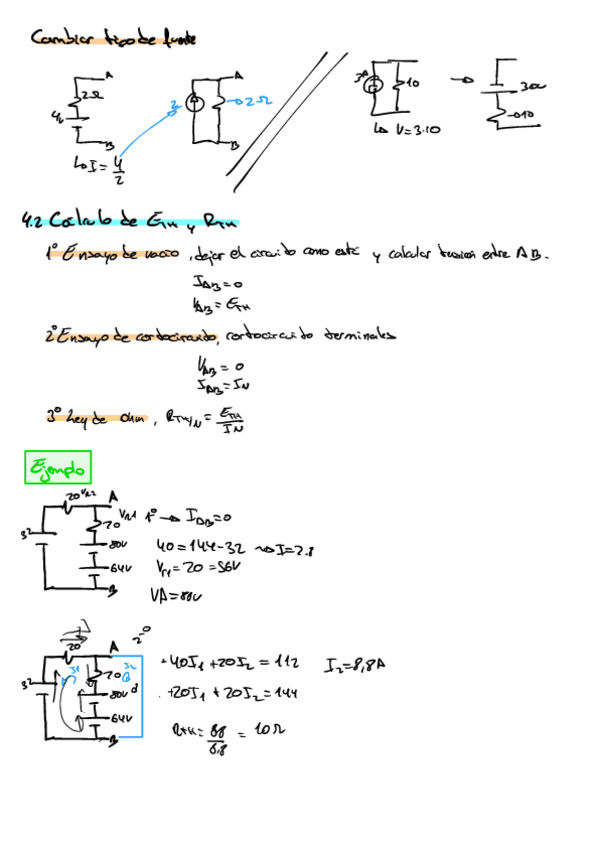 Cambiar tipo de fuente
A
2Ω
4v
B
I = 4/2
2
A
2Ω
B
3A
10
V=3·10
30v
10
4.2 Cálculo de ETH y RTH
1º Ensayo de vacío, dejar el circuito como está y calcular tensión entre AB.
IAB=0
VAB=ETH
2º Ensayo de cortocircuito, cortocircuito terminales
VAB=0
IAB=IN
3º Ley de Ohm, RTH/N = ETH/IN
Ejemplo
20 VR2 A
VR1 1º → IAB=0
20
32
80V
64V
B
40=144-32 I=2.8
Vr1=20=56V
VA=88v
20 A
I1
I2
20
32
80V
64V
B
-40I1+20I2=112 I2=8,8A
+20I1+20I2=144
RTH=88/8,8=10Ω